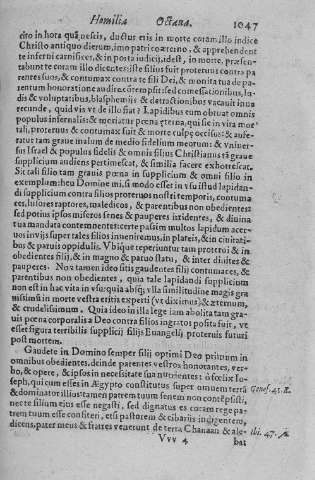 Homilia Octaua. 1047
cito in hora qua nescis, ductus eris in morte coram illo iudice
Christo antiquo dierum, imo patri coæterno, & apprehendent
te inferni carnifices, & in porta iudicij, idest, in morte, præsen-
tabunt te coram illo dicētes: iste filius fuit proteruus contra pa
rentes suos, & contumax contra te filij Dei, & monita tua de pa-
rentum honoratione audire cōtempsit: sed comessationibus, la-
dis & voluptatibus, blasphemijs & detractionibus vacauit in ua
recunde, quid vis vt de illo fiat? Lapidibus eum obruat omnis
populus infernalis: & meriatur pœna æterna, qui sic in vita mor
tali, proteruus & contumax fuit & morte culpę occisus: & aufe-
ratur tam graue malum de medio fidelium meorum: & vniuer-
sus Israel & populus fidelis & omnis filius Christianus tā graue
supplicium audiens pertimescat, & similia facere exhorrescat.
Sit tali filio tam grauis pœna in supplicium & omni filio in
exemplum: heu Domine mi, si modo esset in vsu istud lapidan-
di supplicium contra filios proteruos nostri temporis, contuma
ces, lusores raptores, maledicos, & parentibus non obedientes:
sed potius ipsos miseros senes & pauperes irridentes, & diuina
tua mandata contemnentes: certe passim multos lapidum acer-
uos in vijs super tales filios inueniremus, in plateis, & in ciuitati-
bus & paruis oppidulis. Vbique reperiuntur tam proterui & in
obedientes filij, & in magno & paruo statu, & inter diuites &
pauperes. Non tamen ideo sitis gaudentes filij contumaces, &
parentibus non obedientes, quia tale lapidandi supplicium
non est in hac vita in vsu: quia absq; vlla similitudine magis gra
uissimū in morte vestra eritis experti (vt diximus) & æternum,
& crudelissimum. Quia ideo in illa lege iam abolita tam gra-
uis pœna corporalis a Deo contra filios ingratos posita fuit, vt
esset figura terribilis supplicij filijs Euangelij proteruis futuri
post mortem.
Gaudete in Domino semper filij optimi Deo primum in
omnibus obedientes, deinde parentes vestros honorantes, ver-
bo, & opere, & ipsos in necessitate sua nutrientes: o fœlix Io-
seph, qui cum esses in Ægypto constitutus super omnem terrā
& dominator illius: tamen patrem tuum senem non contēpsisti,
nec te filium eius esse negasti, sed dignatus es coram rege pa-
trem tuum esse confiteri, etsi pastorem & cibarijs indigentem,
dicens, pater meus & fratres venerunt de terra Chanaan & ale-
Genes. 41. E.
Ibi. 47. A.
Vvv 4 bat